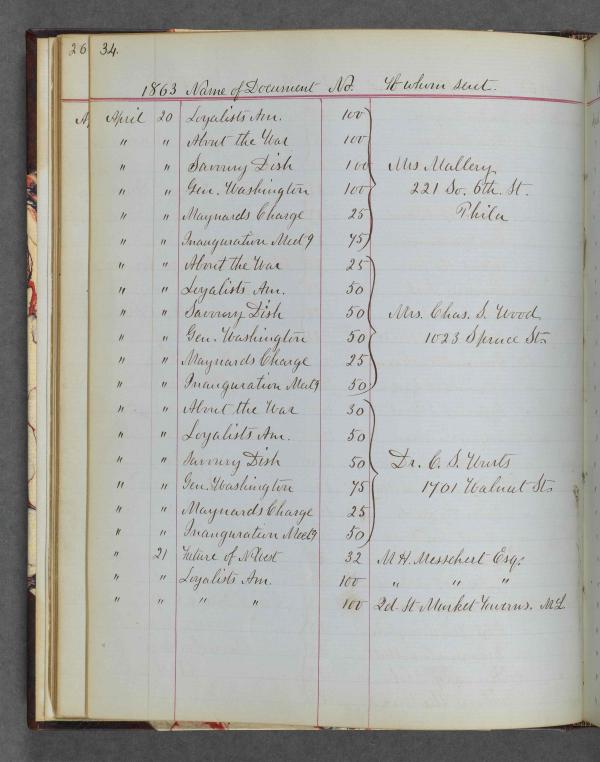 26 34.
1863 Name of Document No. To whom sent.
A, April 20 Loyalists Am. 100
" " About the War 100
" " Savoury Dish 100 Mrs Mallery
" " Gen. Washington 100 221 So. 6th. St.
" " Maynards Charge 25 Phila
" " Inauguration Meetg 75
" " About the War 25
" " Loyalists Am. 50
" " Savoury Dish 50 Mrs. Chas. S. Wood
" " Gen. Washington 50 1023 Spruce St.
" " Maynards Charge 25
" " Inauguration Meetg 50
" " About the War 30
" " Loyalists Am. 50
" " Savoury Dish 50 Dr. C. S. Wurts
" " Gen. Washington 75 1701 Walnut St.
" " Maynards Charge 25
" " Inauguration Meetg 50
" 21 Future of N. West 32 M. H. Messchert Esq.
" " Loyalists Am. 100 " " "
" " " " 100 2d St Market